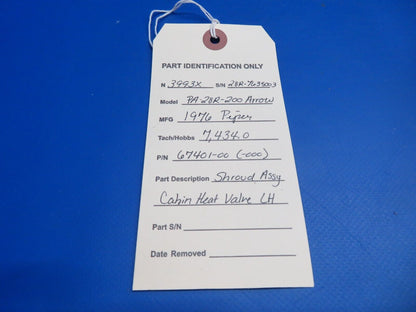 PART IDENTIFICATION ONLY
N 3993X S/N 28R-7635003
Model PA-28R-200 Arrow
MFG 1976 Piper
Tach/Hobbs 7,434.0
P/N 67401-00 (-000)
Part Description Shroud Assy
Cabin Heat Valve LH
Part S/N
Date Removed